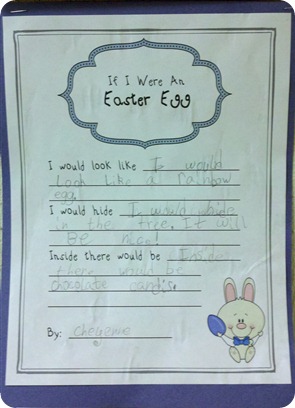 If I Were An
Easter Egg
I would look like I would
Look Like a rainbow
egg.
I would hide I would hide
in the tree. It will
Be nice!
Inside there would be Inside
there would be
chocolate candis.
By: cheyenne